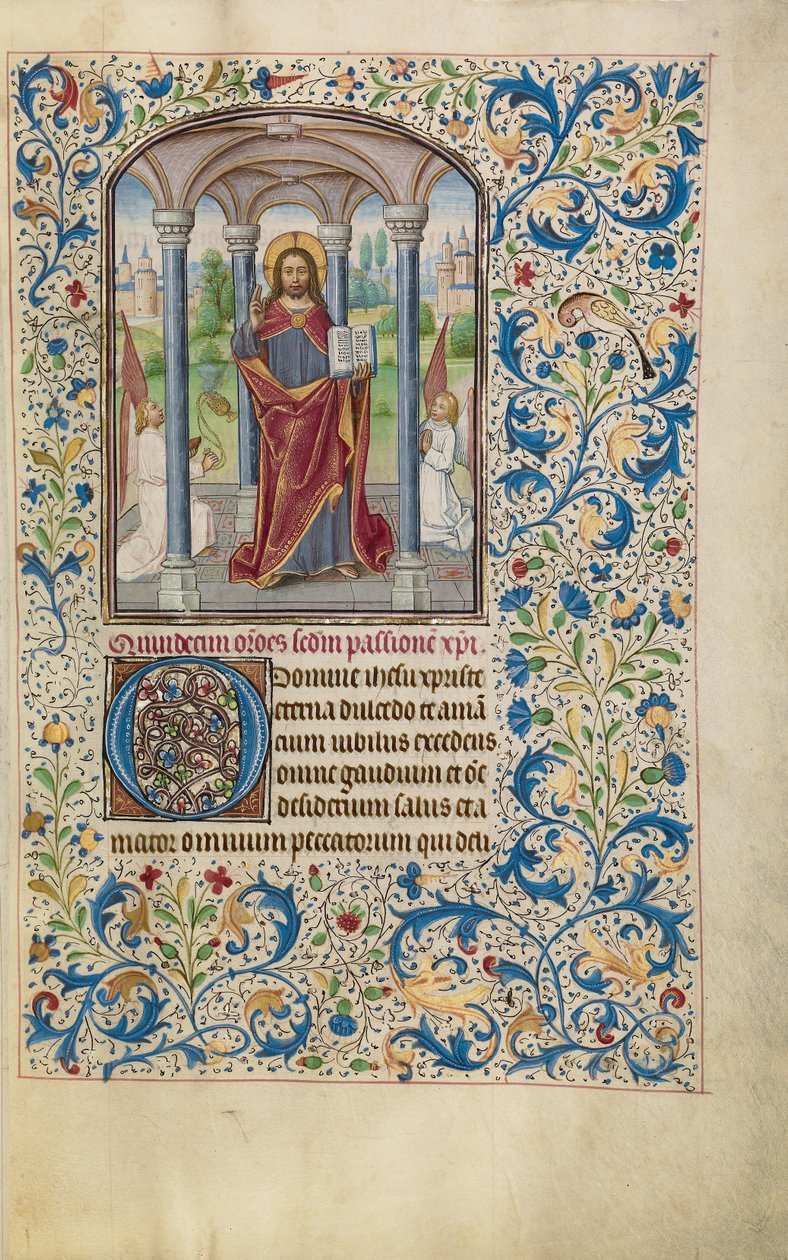 Quindecim orōes scdm passionē xp̄i.
O Domine ihesu xpriste
eterna dulcedo te amā
cium iubilus excedens
omne gaudium et oē
desiderium salus et a
mator omnium peccatorum qui deli